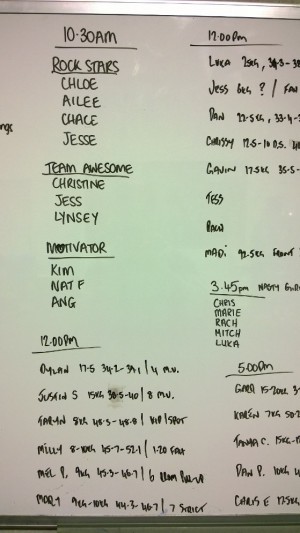 10:30AM
ROCK STARS
CHLOE
AILEE
CHACE
JESSE
TEAM AWESOME
CHRISTINE
JESS
LYNSEY
MOTIVATOR
KIM
NAT F
ANG
12:00PM
DYLAN 17-5 34-2-39-1 / 4 M.U.
JUSTIN S 15KG 38-5-40 / 8 M.U.
TARYN 8KG 48-5-48-8 / VIP/SPOT
MILLY 8-10KG 45-7-52-1 / 1-20 FAN
MEL P. 9KG 45-3-46-7 / 6
MARY 9KG-10KG 44-3-46-7 / 7 STRICT
ngs
12:00PM
LUKA 25KG, 34-3-38
JESS 6KG ? / FAN
DAN 22-5KG, 33-4-3
CHRISSY 12-5-10 D.S.
GAVIN 17-5KG 35-5-
TESS
RACH
MADI 92-5KG FRONT
3.45pm NASTY GIR
CHRIS
MARIE
RACH
MITCH
LUKA
5:00PM
15-20KG 3-
KAREN 7KG 50-2
TANIA C. 15KG-1
DAN P. 10KG 4
CHRIS E 17.5KG